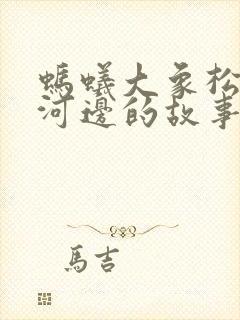 螞蟻大象松
河邊的故事
馬吉